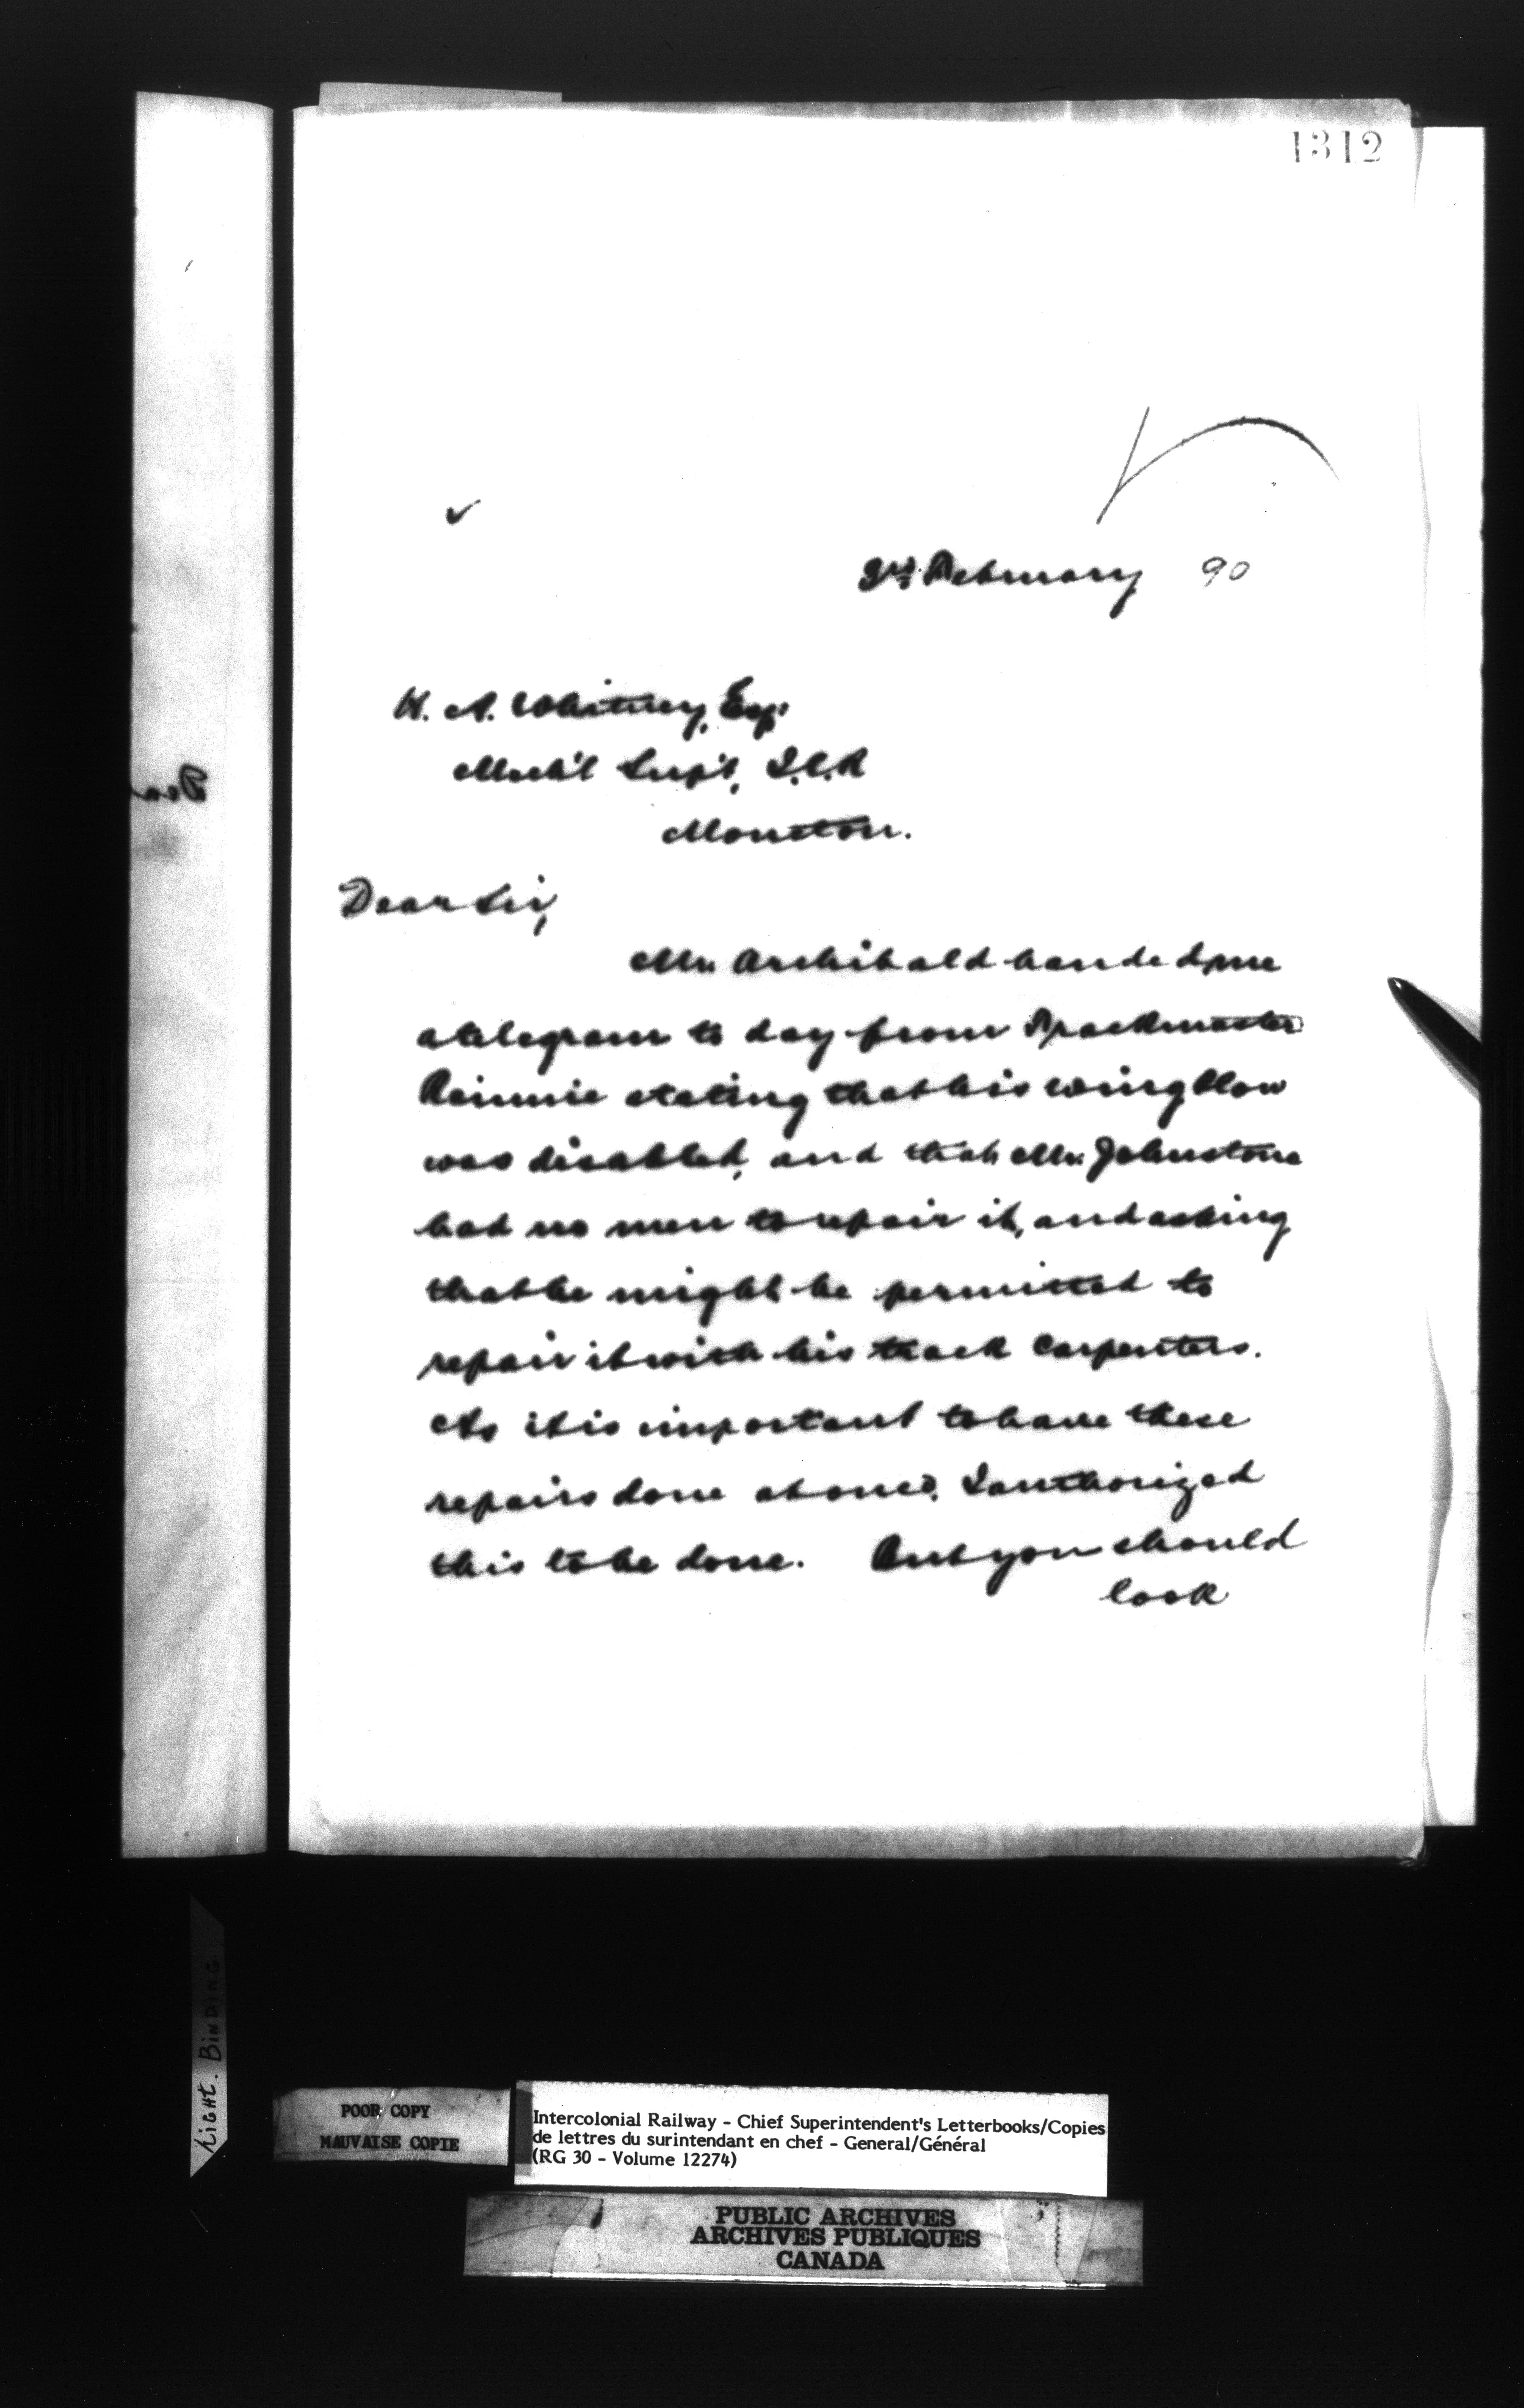 1312
3rd February 90
H. A. Whitney, Esq:
Mech'l Sup't, I.C.R
Moncton.
Dear Sir,
Mr. Archibald handed me
a telegram to day from Trackmaster
Rennie stating that his wing Plow
was disabled, and that Mr. Johnstone
had no men to repair it, and asking
that he might be permitted to
repair it with his track Carpenters.
As it is important to have these
repairs done at once, I authorized
this to be done. But you should
look
Dear
LIGHT. BINDING
POOR COPY
MAUVAISE COPIE
Intercolonial Railway - Chief Superintendent's Letterbooks/Copies
de lettres du surintendant en chef - General/Général
(RG 30 - Volume 12274)
PUBLIC ARCHIVES
ARCHIVES PUBLIQUES
CANADA